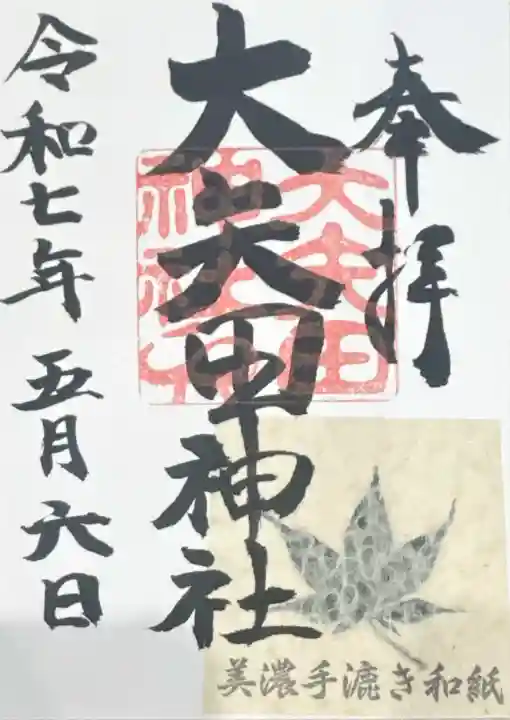 奉拝
大矢田神社
大矢田
神社印
令和七年五月六日
美濃手漉き和紙